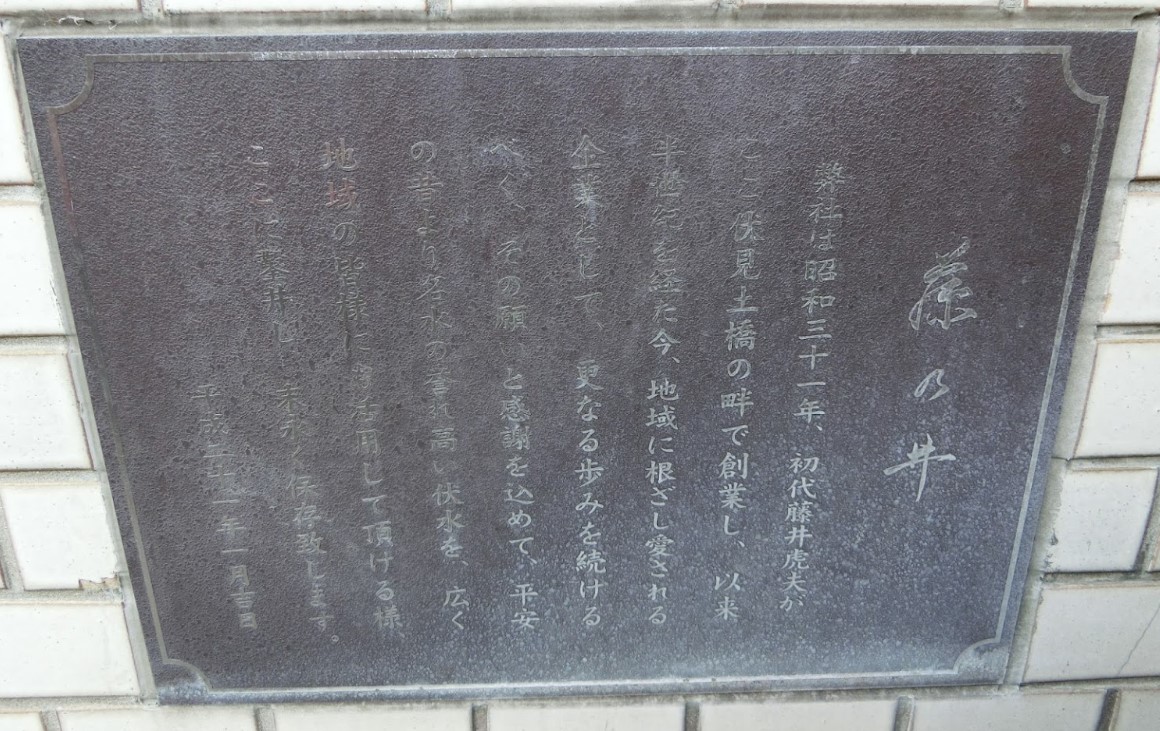 藤乃井
弊社は昭和三十一年、初代藤井虎夫が
ここ伏見土橋の畔で創業し、以来
半世紀を経た今、地域に根ざし愛される
企業として、更なる歩みを続ける
べく、その願いと感謝を込めて、平安
の昔より名水の誉れ高い伏水を、広く
地域の皆様に御活用して頂ける様、
ここに鑿井し、末永く保存致します。
平成二十一年一月吉日